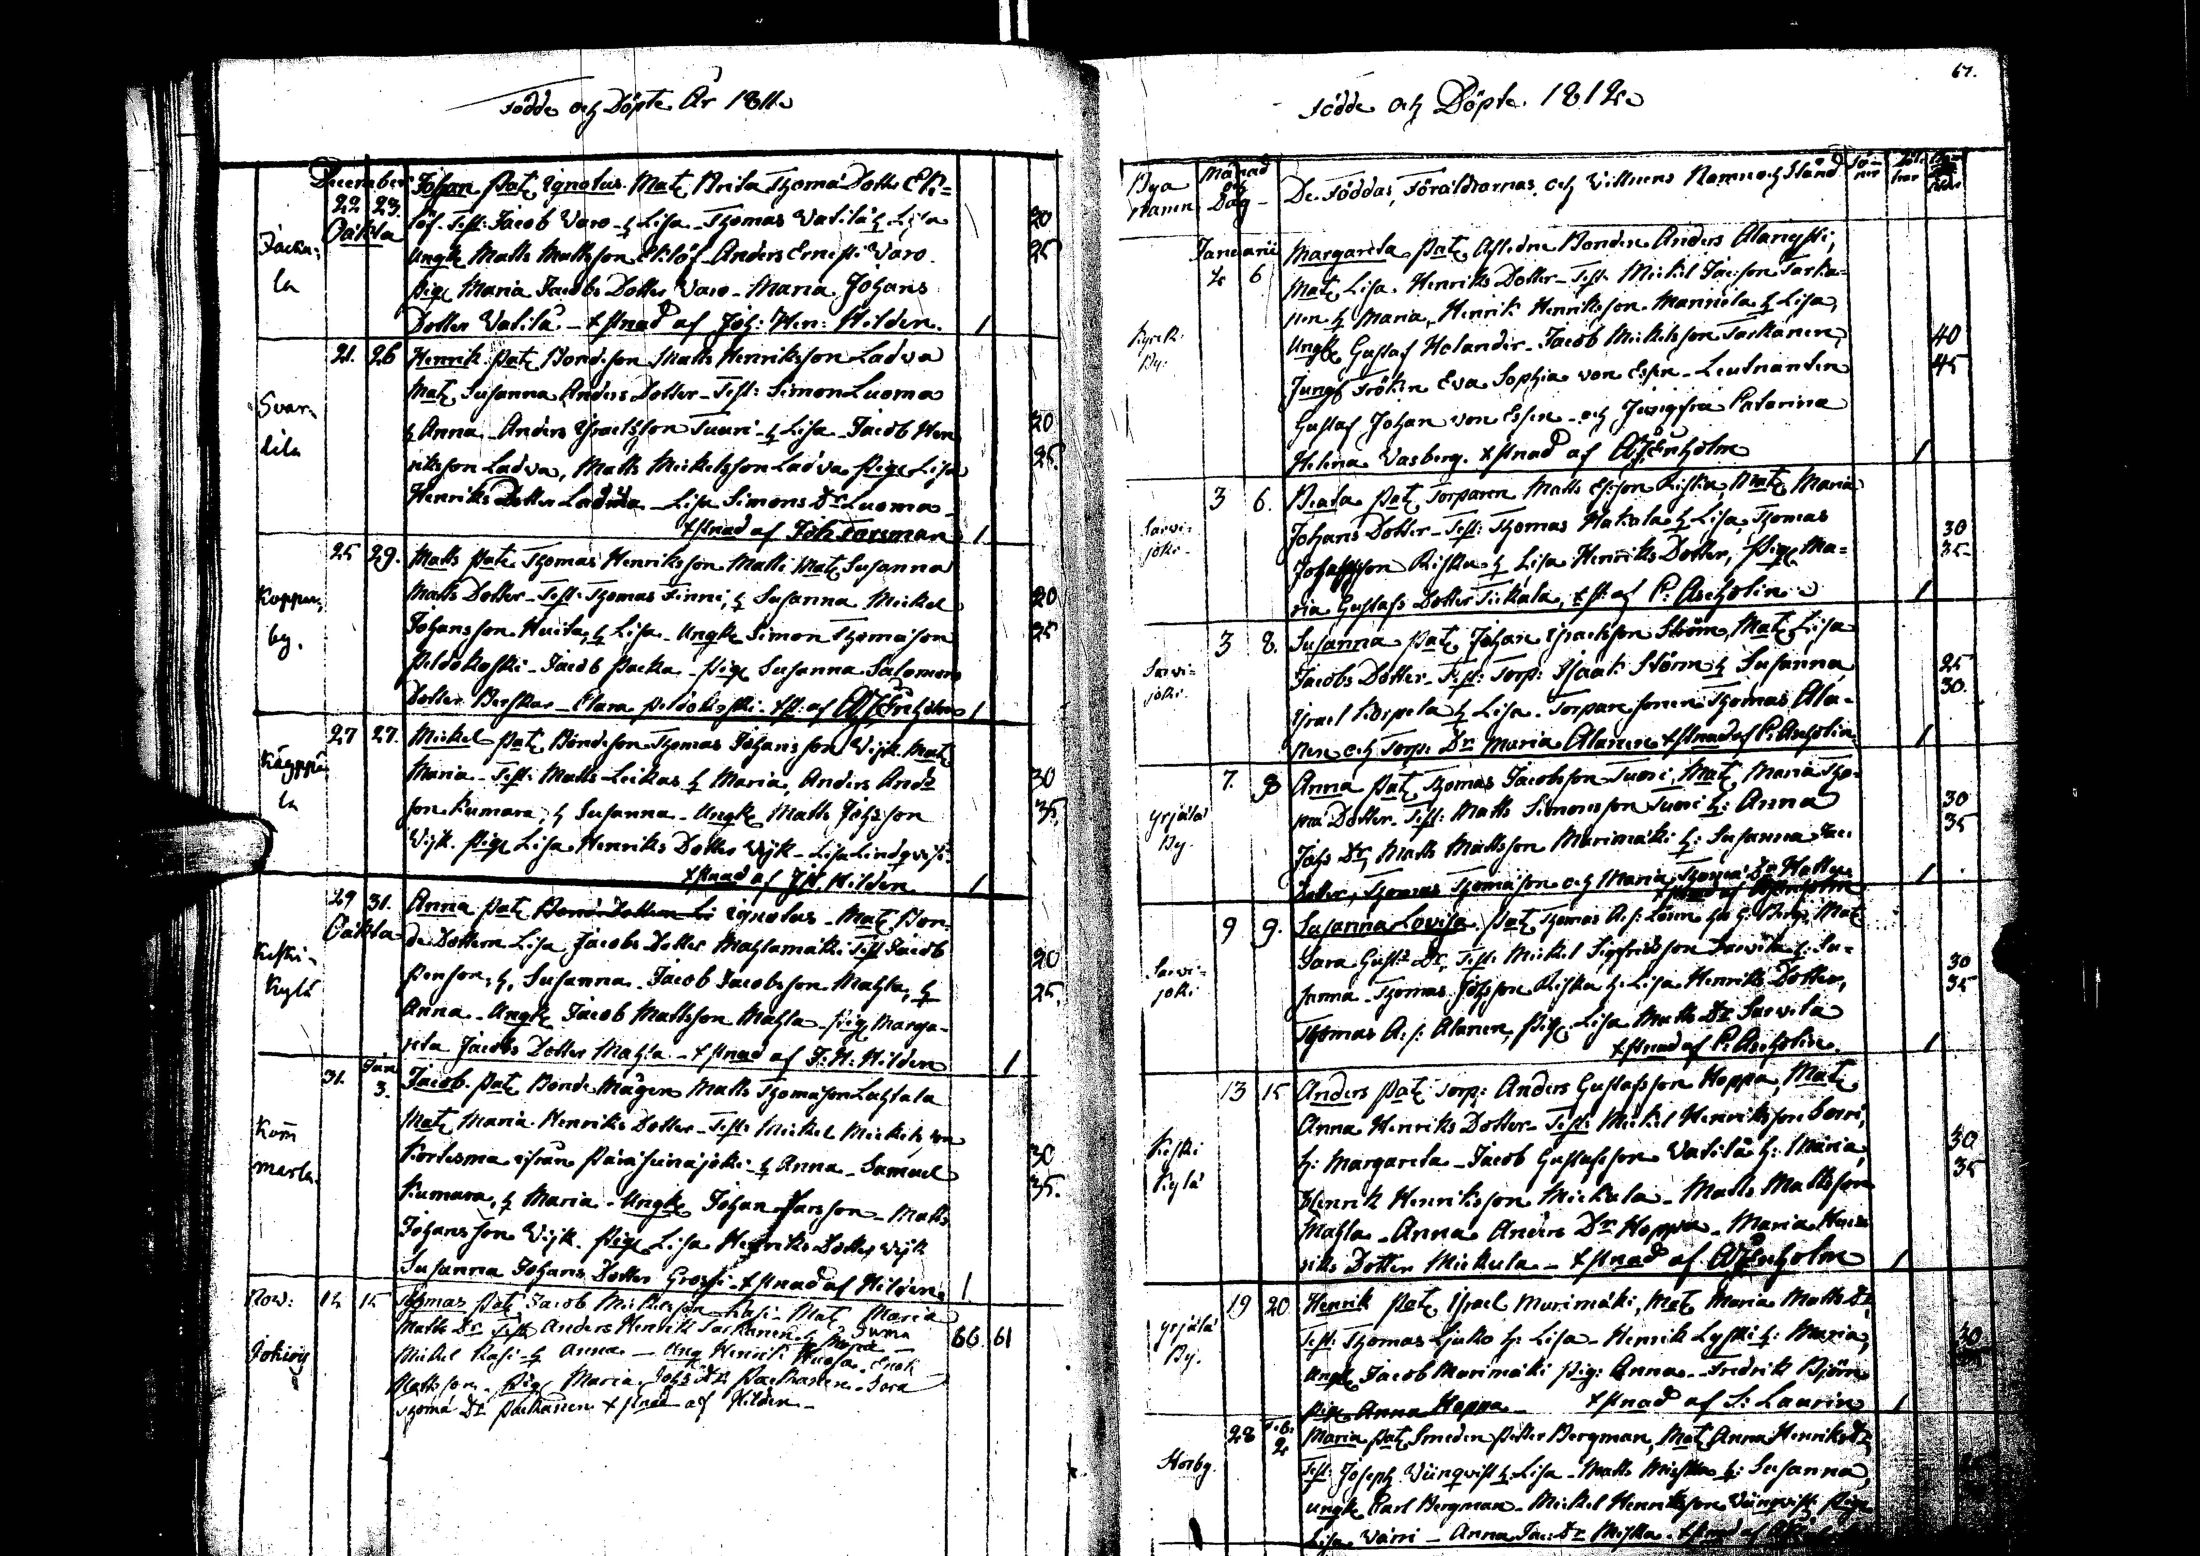 Födde och Döpte År 1811.
December
22 23.
Oäkta
Jacka-
la
Johan Pat: Ignotus. Mat: Brita Thomæ Dotter Ek-
löf. Test: Jacob Varo h. Lisa. Thomas Vatilä h. Lisa
Ungk: Matts Mattsson Eklöf Anders Ernesti Varo.
Pig: Maria Jacobs Dotter Varo - Maria Johans
Dotter Vatilä. - xstnad af Joh: Hen: Hilden. 1
20
25
Svar-
dila
21. 26
Henrik Pat: Bondeson Matts Henriksson Ladva
Mat: Susanna Anders Dotter - Test: Simon Luoma
h Anna - Anders Israelsson Tuuri - h Lisa - Jacob Hen
riksson Ladva, Matts Mickelsson Ladva Pige Lisa
Henriks Dotter Ladva - Lisa Simons Dr Luoma -
xstnad af Joh Forsman 1
20
25.
Koppar-
by.
25 29.
Matts Pat: Thomas Henriksson Matti Mat: Susanna
Matts Dotter - Test: Thomas Finni, h Susanna Mickel
Johansson Huita, h Lisa - Ungk: Simon Thomasson
Peldokoski - Jacob Packa - Pige Susanna Salomons
Dotter - Clara Peldokoski - xst: af 1
20
25
Käyppä-
la
27 27.
Mickel Pat: Bondeson Thomas Johansson Vijk. Mat:
Maria - Test: Matts Leikas h Maria, Anders Andr
son Kumara, h Susanna - Ungk Matts Johsson
Vijk. Pige Lisa Henriks Dotter Vijk - Lisa Lindqvist
xstnad af J.H. Hilden. 1
30
35.
Keski-
Kylä
29 31.
Oäkta
Anna Pat: ignotus - Mat: Bon-
de Dottern Lisa Jacobs Dotter Mahlamäki Test Jacob
Penson, h, Susanna. Jacob Jacobsson Mahla, h
Anna - Ungk: Jacob Mattsson Mahla - Pig Marga-
reta Jacobs Dotter Mahla - xstnad af J. H. Hilden 1
20
25
Kom
marla.
31. Jan
3.
Jacob Pat: Bonde Mågen Matts Thomasson Lahtala
Mat: Maria Henriks Dotter - Test: Mickel Mickelsson
Kortesma ifrån Päräseinäjoki - h Anna - Samuel
Kumara, h Maria - Ungk Johan Larsson - Matts
Johansson Vijk. Pige Lisa Henriks Dotter Vijk
Susanna Johans Dotter Grossi - xstnad af Hilden 1
30
35.
Nov: 14 15
Jokioy
Thomas Pat: Jacob Mickelsson Kasi - Mat: Maria
Matts Dr Test: Anders Henrik Tarkanen h Maria
Mickel Kasi h Anna - Ung Henrik
Mattsson. Pig Maria Johs Dr Packanen. Sara
Thoma Dr Packanen xstnad af Hilden -
60. 61

67.
Födde och Döpte. 1812.
Bya
Namn
Månad
och
Dag
De Föddas, Föräldrarnas och Vittnens Namn och Stånd
Januarii
Kyrk-
By.
2 6
Margareta Pat: Afledne Bonden Anders Alangyski,
Mat: Lisa Henriks Dotter - Test: Mickel Jacsson Tarka-
nen h Maria, Henrik Henriksson Mannila h Lisa,
Ungk: Gustaf Helander - Jacob Mickelsson Tarkanen,
Jungf: Fröken Eva Sophia von Essen - Leutnanten
Gustaf Johan von Essen - och Jungfru Catarina
Helena Vasberg. xstnad af 1
40
45
Sarvi-
joki -
3 6.
Beata Pat: Torparen Matts Risku, Mat: Maria
Johans Dotter - Test: Thomas Hakala h Lisa, Thomas
Johansson Risku h Lisa Henriks Dotter, Pige Ma-
ria Gustafs Dotter Tickala, xst: af P: Ascholin 1
30
35
Sarvi-
joki.
3 8.
Susanna Pat: Johan Israelsson Ström, Mat: Lisa
Jacobs Dotter - Test: Torp: Isaak Ström h Susanna,
Israel Korpela h Lisa. Torpare sonen Thomas Ala-
nen och Torp: Dr Maria Alanen xstnad af P. Ascholin 1
25
30.
Yrjälä
By.
7. 8
Anna Pat: Thomas Jacobsson Tuori, Mat: Maria Tho-
mæ Dotter - Test: Matts Simonsson Tuori h: Anna
Johs Dr, Matts Mattsson Marimäki h: Susanna Jac:
Dotter, Thomas Thomasson och Maria Thomæ Dr 1
30
35
Sarvi-
joki
9 9.
Susanna Lovisa Pat: Thomas Mat:
Sara Gusts Dr, Test: Mickel Sigfridsson Sarvela h: Su-
sanna - Thomas Johsson Risku h: Lisa Henriks Dotter,
Thomas A:s: Alanen, Pig: Lisa Matts Dr Sarvela
xstnad af P. Ascholin. 1
30
35
Keski
Kylä
13 15
Anders Pat: Torp: Anders Gustafsson Hoppa Mat:
Anna Henriks Dotter - Test: Mickel Henriksson
h: Margareta - Jacob Gustafsson Vatilä h: Maria,
Henrik Henriksson Mickula - Matts Mattsson
Mahla - Anna Anders Dr Hoppa - Maria Hen
riks Dotter Mickula - xstnad af 1
30
35
Yrjälä
By.
19 20
Henrik Pat: Israel Marimäki, Mat: Maria Matts Dr
Test: Thomas Ljuko h: Lisa - Henrik Lyski h: Maria,
Ungk Jacob Marimäki Pig: Anna - Fredrik Björn
Pige Anna Hoppa - xstnad af S: Laurin 1
30
Storby.
28 Feb:
2
Maria Pat: Smeden Petter Bergman, Mat: Anna Henriks Dr
Test: Joseph Vünqvist h: Lisa - Matts h: Susanna,
Ungk Carl Bergman - Mickel Henriksson Vünqvist Pige
Lisa Värri - Anna Jac: Dr